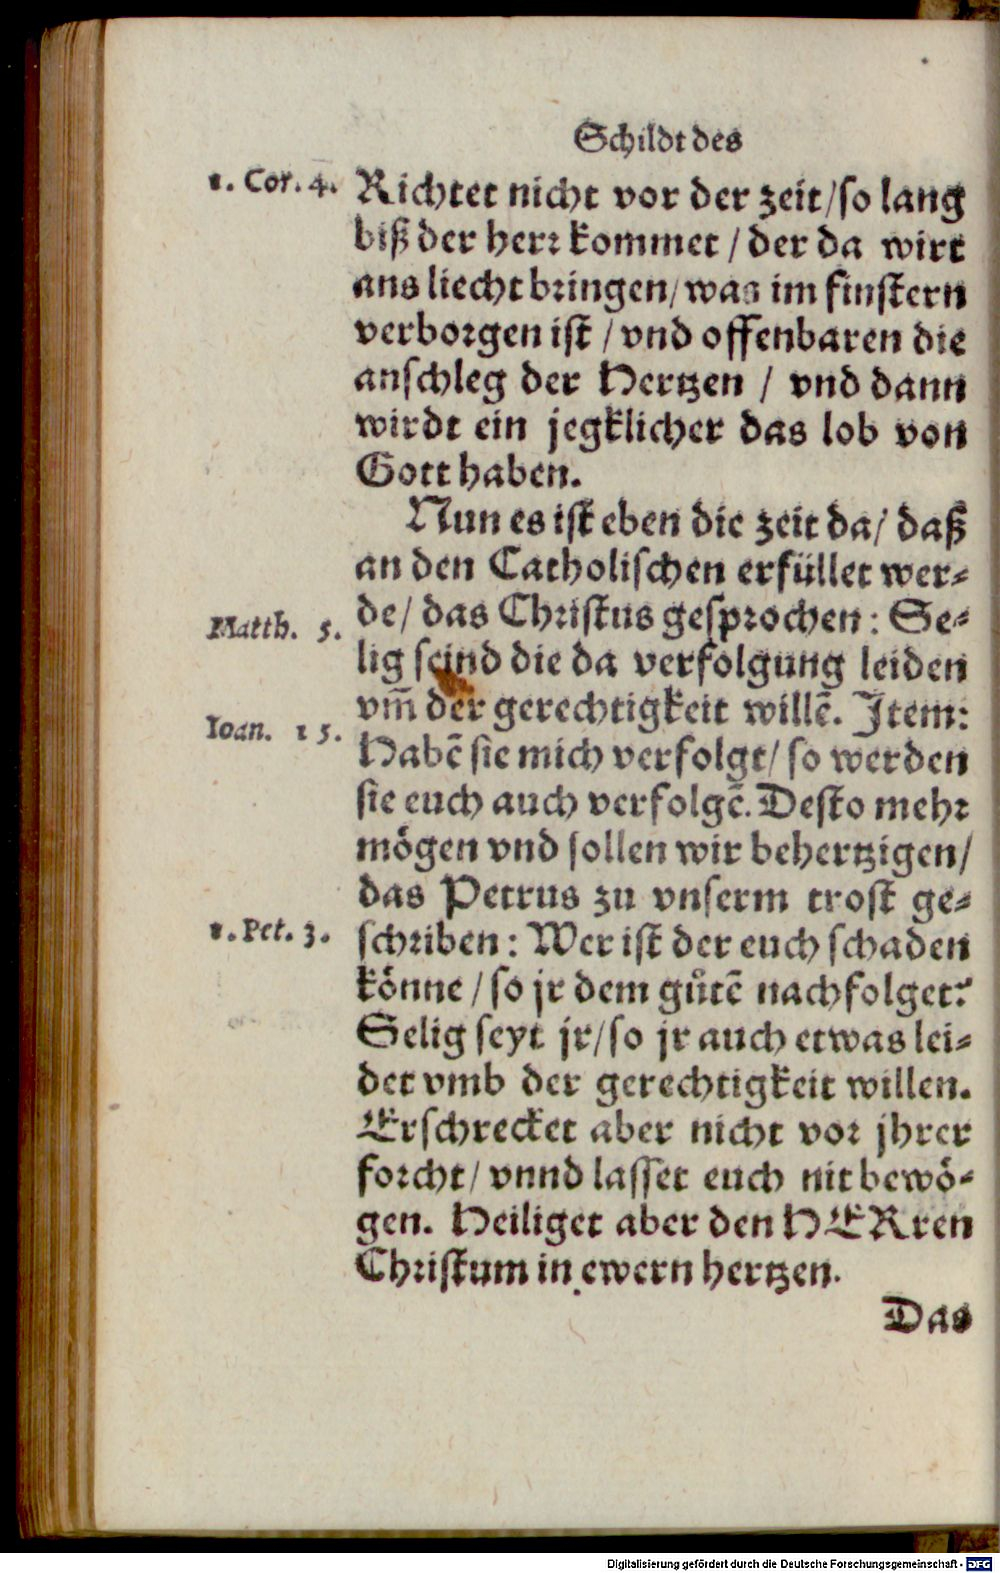 Schildt des
1. Cor. 4.
Richtet nicht vor der zeit/so lang
biß der herr kommet / der da wirt
ans liecht bringen/was im finstern
verborgen ist / vnd offenbaren die
anschleg der Hertzen / vnd dann
wirdt ein jegklicher das lob von
Gott haben.
Nun es ist eben die zeit da/ daß
an den Catholischen erfüllet wer-
de/ das Christus gesprochen: Se-
Matth. 5.
lig seind die da verfolgung leiden
vm̄ der gerechtigkeit willē. Item:
Ioan. 15.
Habē sie mich verfolgt/ so werden
sie euch auch verfolgē. Desto mehr
mögen vnd sollen wir behertzigen/
das Petrus zu vnserm trost ge-
1. Pet. 3.
schriben: Wer ist der euch schaden
könne / so jr dem gůtē nachfolget?
Selig seyt jr/so jr auch etwas lei-
det vmb der gerechtigkeit willen.
Erschrecket aber nicht vor jhrer
forcht/ vnnd lasset euch nit bewö-
gen. Heiliget aber den HERren
Christum in ewern hertzen.
Das
Digitalisierung gefördert durch die Deutsche Forschungsgemeinschaft - DFG